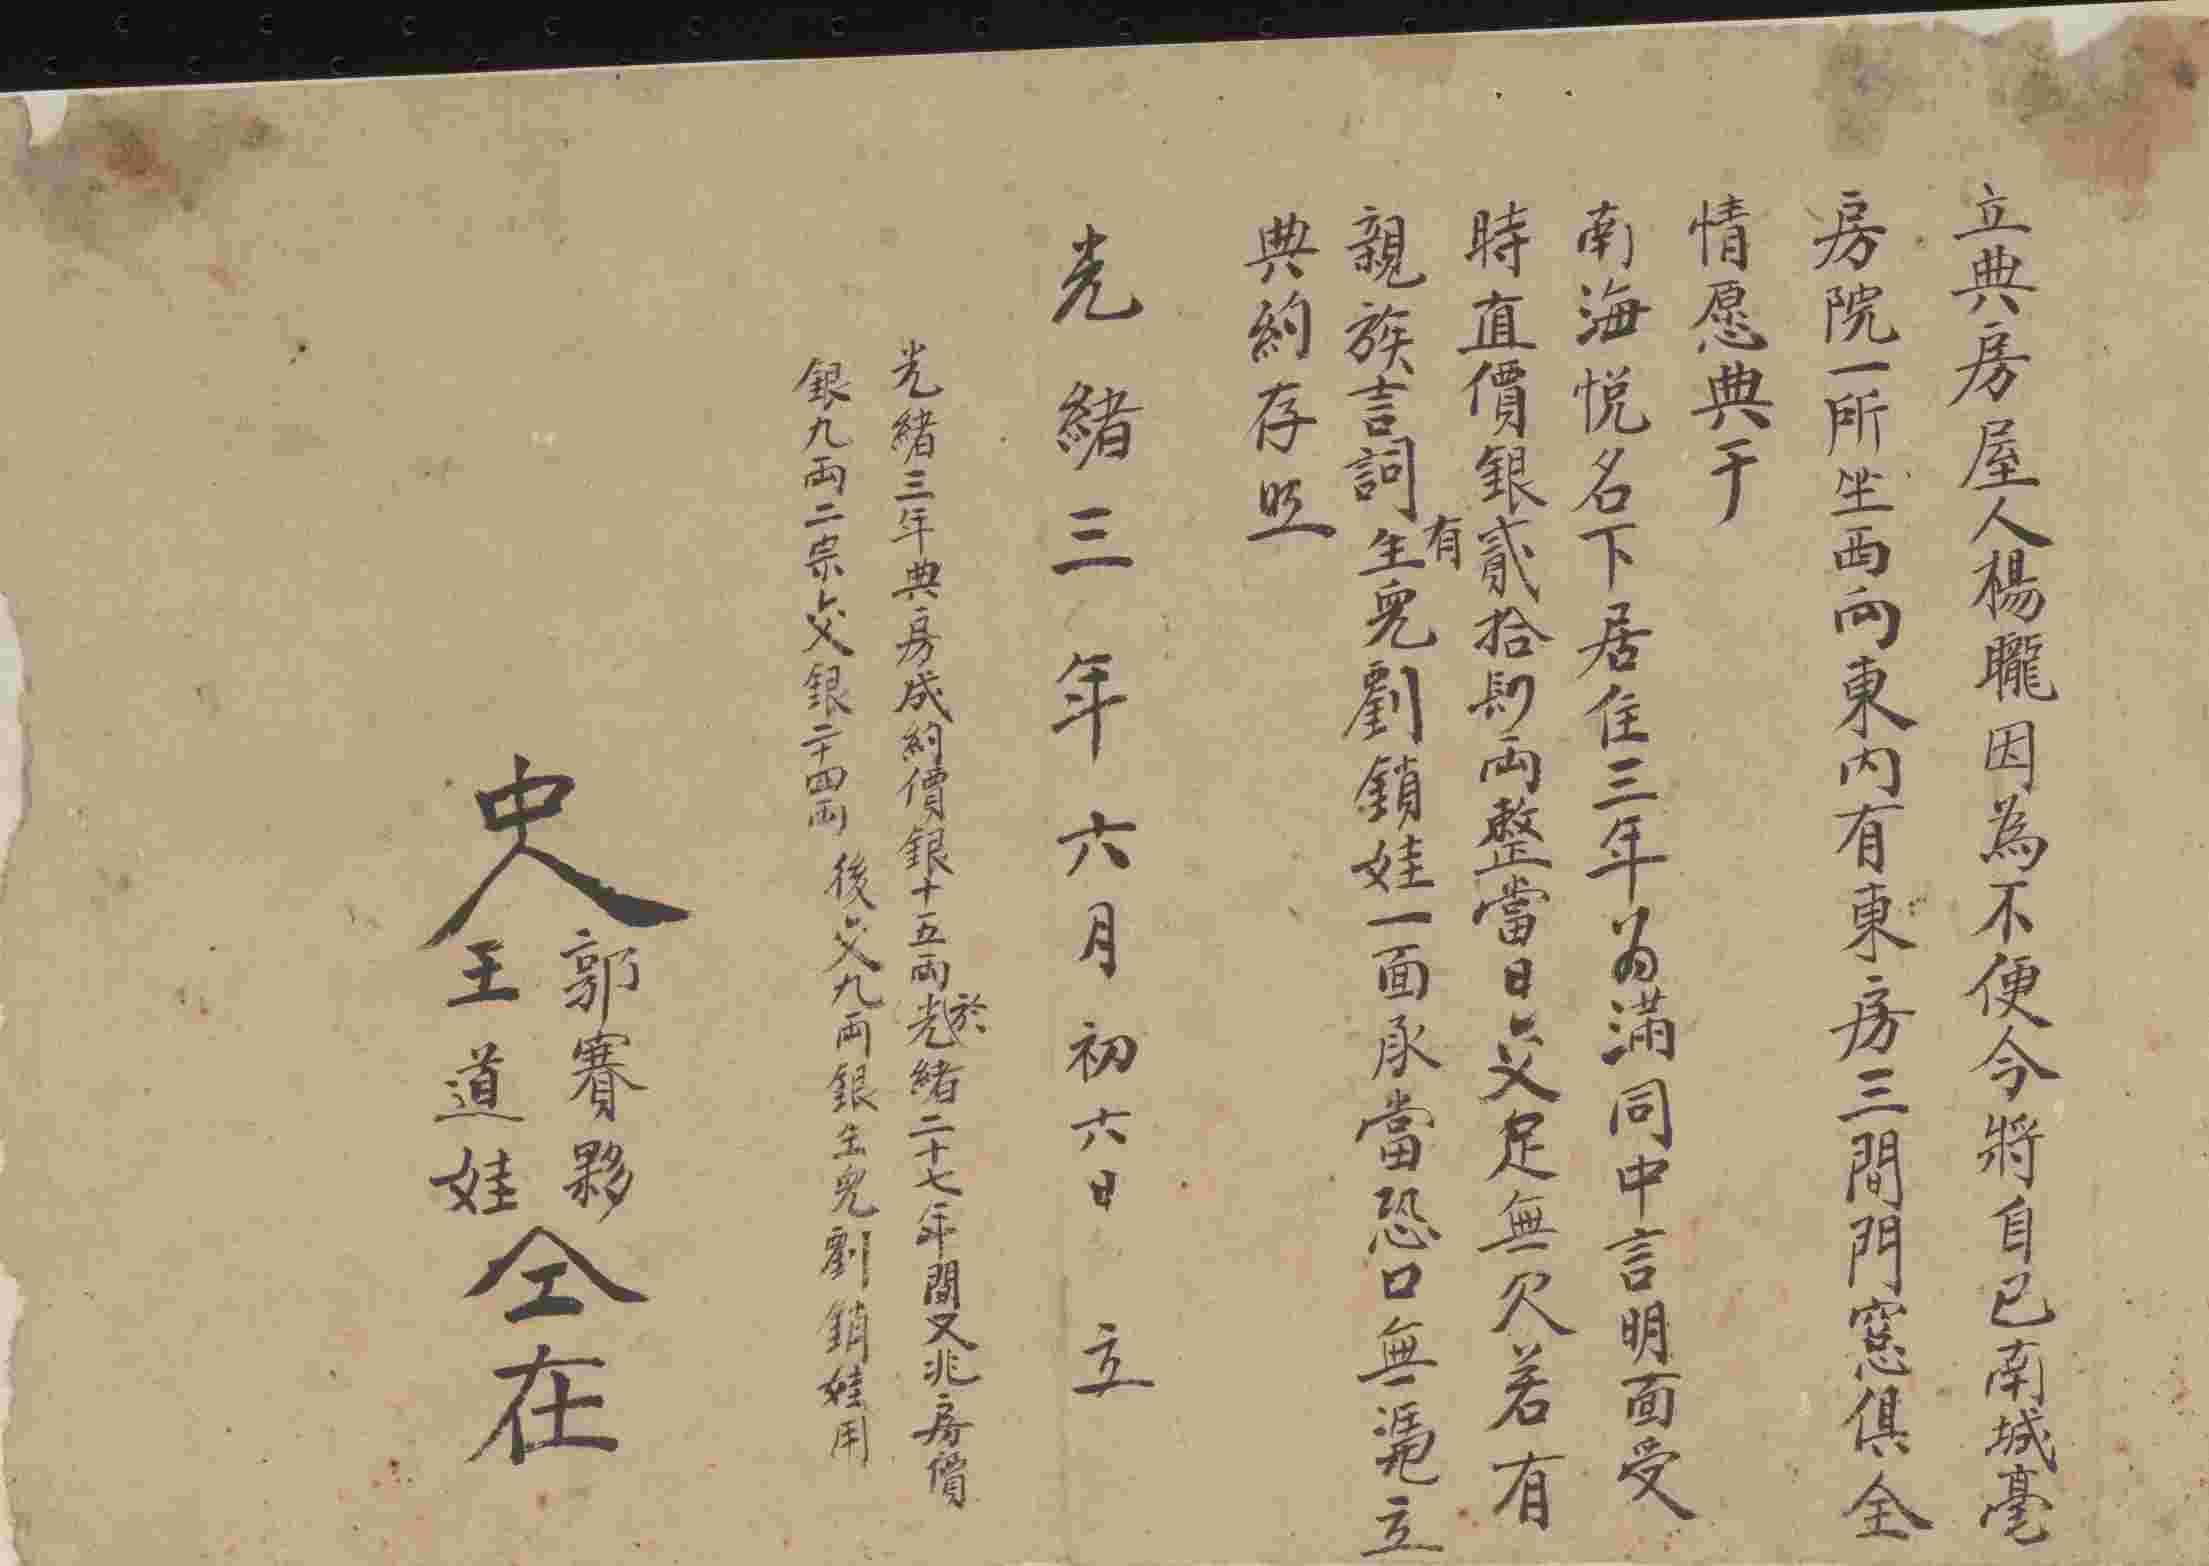 立典房屋人楊曨因為不便今將自已南城毫
房院一所坐西向東內有東房三間門窓俱全
情愿典于
南海悅名下居住三年为滿同中言明面受
時直價銀貳拾肆両整當日交足無欠若有
親族言詞有生児劉鎖娃一面承當恐口無凴立
典約存照
光緒三年六月初六日 立
光緒三年典房成約價銀十五両於光緒二十七年間又兆房價
銀九両二宗交銀二十四両 後交九両銀生児劉鎖娃用
中人
郭賽夥
王道娃
仝在